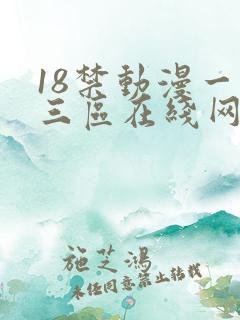 18禁動漫一
三區在綫网
施芝鴻
未经同意禁止转载